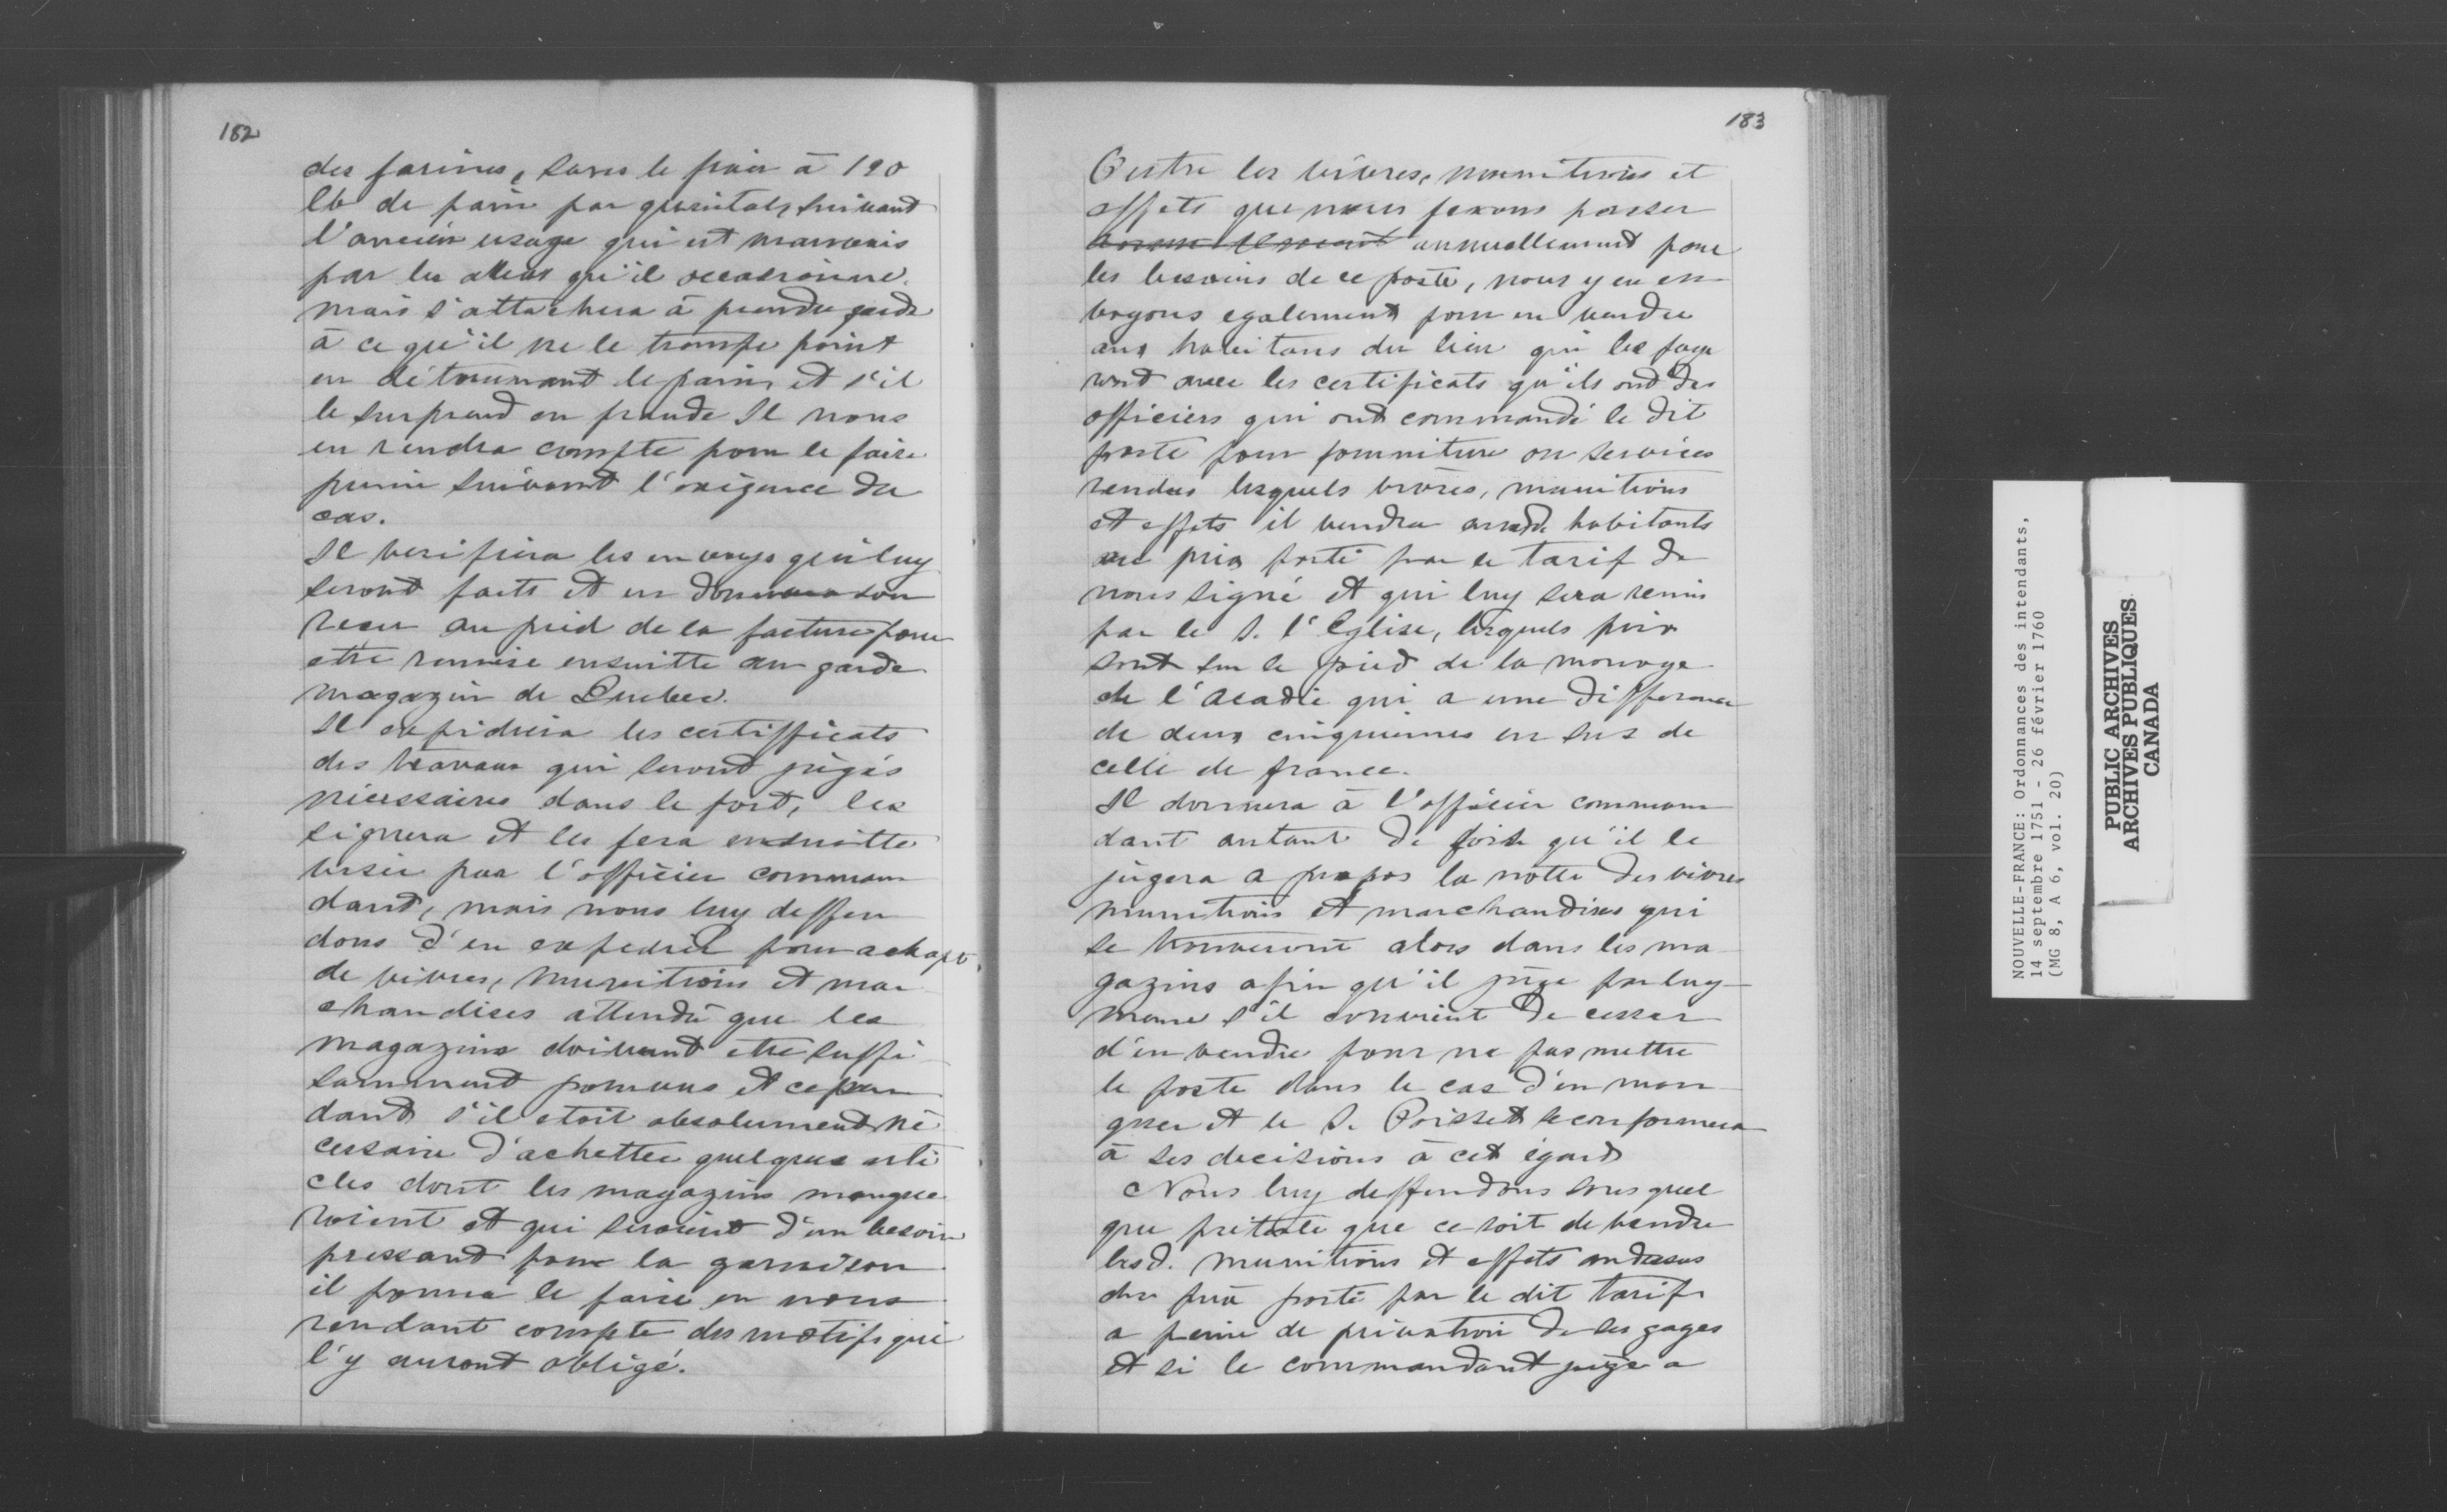 182
des farines, sans le fixer à 190
lb de pain par quintal, suivant
l'ancien usage qui est mauvais
par les abus qu'il occasionne.
mais s'attachera à prendre garde
à ce qu'il ne le trompe point
en détournant le pain, et s'il
le surprend en fraude Il nous
en rendra compte pour le faire
punir suivant l'exigence du
cas.
Il verifiera les envoys qui luy
seront faits et en donnera son
recu au pied de la facture pour
etre remise ensuitte au garde
magazin de Quebec.
Il expediera les certifficats
des travaux qui seront jugés
nécessaires dans le fort, les
signera et les fera ensuitte
viser par l'officier comman
dant, mais nous luy deffen
dons d'en expedier pour achapt
de vivres, munitions et mar
chandises attendu que les
magazins doivent etre suffi
samment pourvus et cepen
dant s'il etoit absolument né
cessaire d'achetter quelques arti
cles dont les magazins manque
roient et qui seroient d'un besoin
pressant pour la garnison
il pourra le faire en nous
rendant compte des motifs qui
l'y auront obligé.
183
Outre les vivres, munitions et
effets que nous ferons passer
annuellement pour
les besoins de ce poste, nous y en en
voyons egalement pour en vendre
aux habitans du lieu qui les paye
ront avec les certificats qu'ils ont des
officiers qui ont commandé le dit
poste pour fourniture ou services
rendus lesquels vivres, munitions
et effets il vendra auxd. habitants
au prix porté par le tarif de
nous signé et qui luy sera remis
par le S. l'Eglise, lesquels prix
sont sur le pied de la monoye
de l'acadie qui a une difference
de deux cinquiemes en sus de
celle de france.
Il donnera à l'officier comman
dant autant de fois qu'il le
jugera a propos la notte des vivres
munitions et marchandises qui
se trouveront alors dans les ma
gazins afin qu'il juge par luy
meme s'il convient de cesser
d'en vendre pour ne pas mettre
le poste dans le cas d'en man
quer et le S. Poisset se conformera
à ses decisions à cet égard
Nous luy deffendons sous quel
que pretexte que ce soit de vendre
lesd. munitions et effets audessus
du prix porté par le dit tarif
a peine de privation de ses gages
et si le commandant juge a
NOUVELLE-FRANCE: Ordonnances des intendants,
14 septembre 1751 - 26 février 1760
(MG 8, A 6, vol. 20)
PUBLIC ARCHIVES
ARCHIVES PUBLIQUES
CANADA